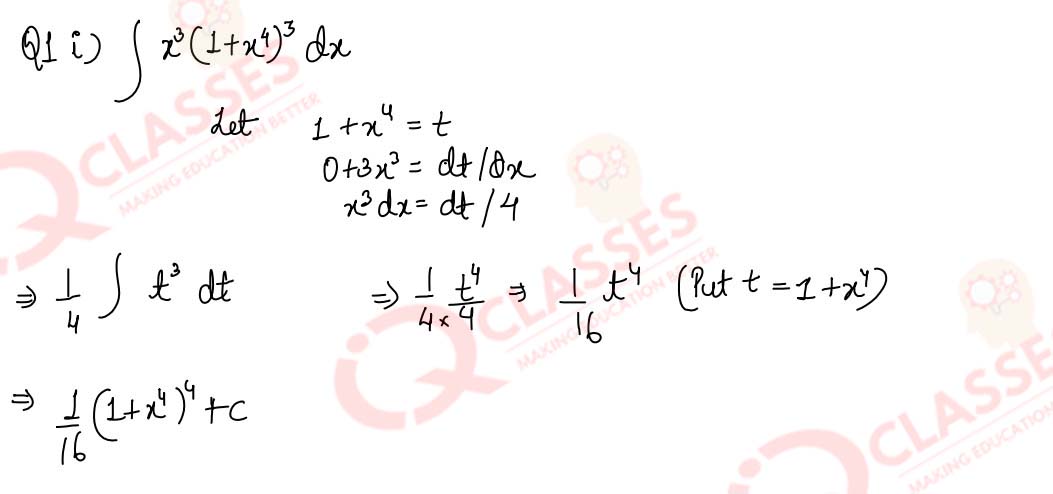 Q1 i) ∫ x³(1+x⁴)³ dx
Let 1 + x⁴ = t
0+3x³ = dt/dx
x³dx = dt/4
⇒ 1/4 ∫ t³ dt ⇒ 1/4 × t⁴/4 ⇒ 1/16 t⁴ (Put t = 1+x⁴)
⇒ 1/16 (1+x⁴)⁴ + c
CLASSES
MAKING EDUCATION BETTER
CLASSES
MAKING EDUCATION BETTER
CLASSE
MAKING EDUCATION